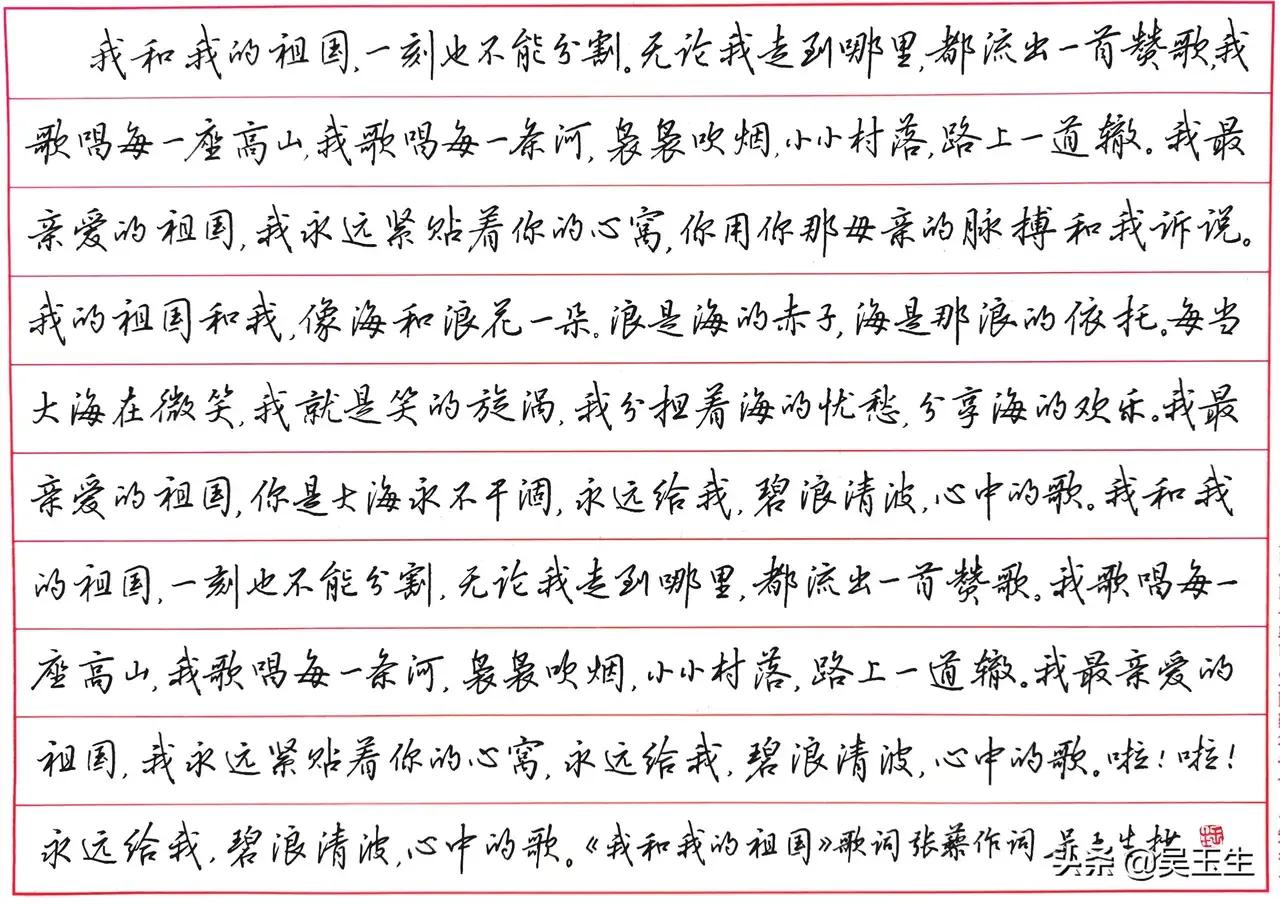 我和我的祖国,一刻也不能分割。无论我走到哪里,都流出一首赞歌,我
歌唱每一座高山,我歌唱每一条河,袅袅吹烟,小小村落,路上一道辙。我最
亲爱的祖国,我永远紧贴着你的心窝,你用你那母亲的脉搏和我诉说。
我的祖国和我,像海和浪花一朵。浪是海的赤子,海是那浪的依托。每当
大海在微笑,我就是笑的旋涡,我分担着海的忧愁,分享海的欢乐。我最
亲爱的祖国,你是大海永不干涸,永远给我,碧浪清波,心中的歌。我和我
的祖国,一刻也不能分割,无论我走到哪里,都流出一首赞歌。我歌唱每一
座高山,我歌唱每一条河,袅袅吹烟,小小村落,路上一道辙。我最亲爱的
祖国,我永远紧贴着你的心窝,永远给我,碧浪清波,心中的歌。啦!啦!
永远给我,碧浪清波,心中的歌。《我和我的祖国》歌词张藜作词 吴玉生
头条 @吴玉生